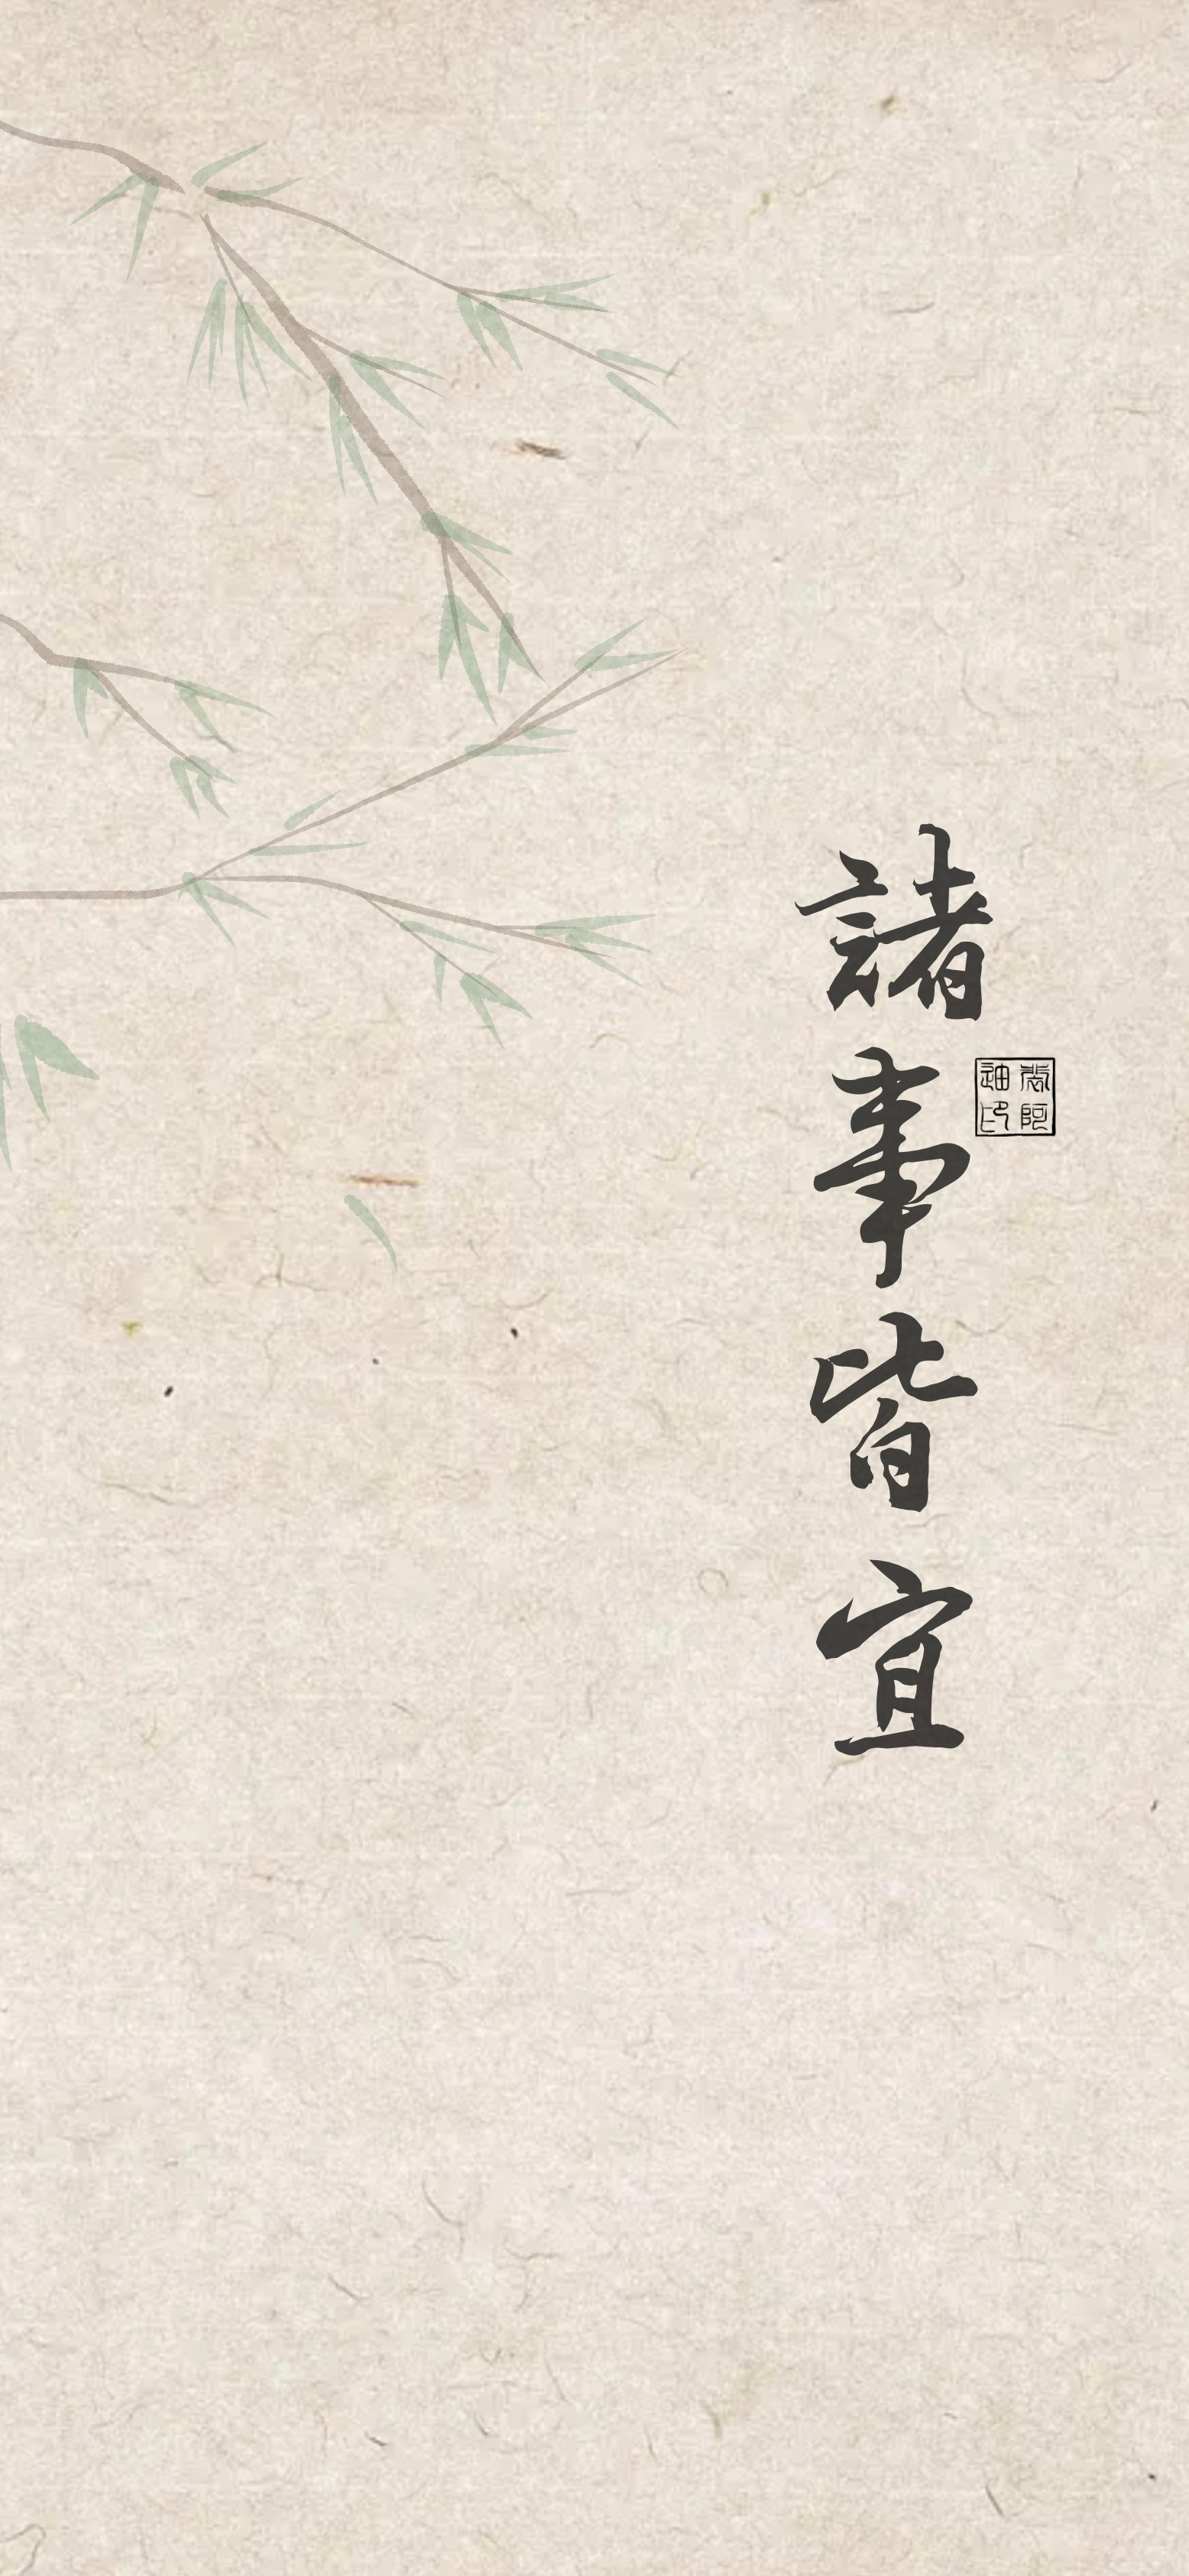 諸事皆宜